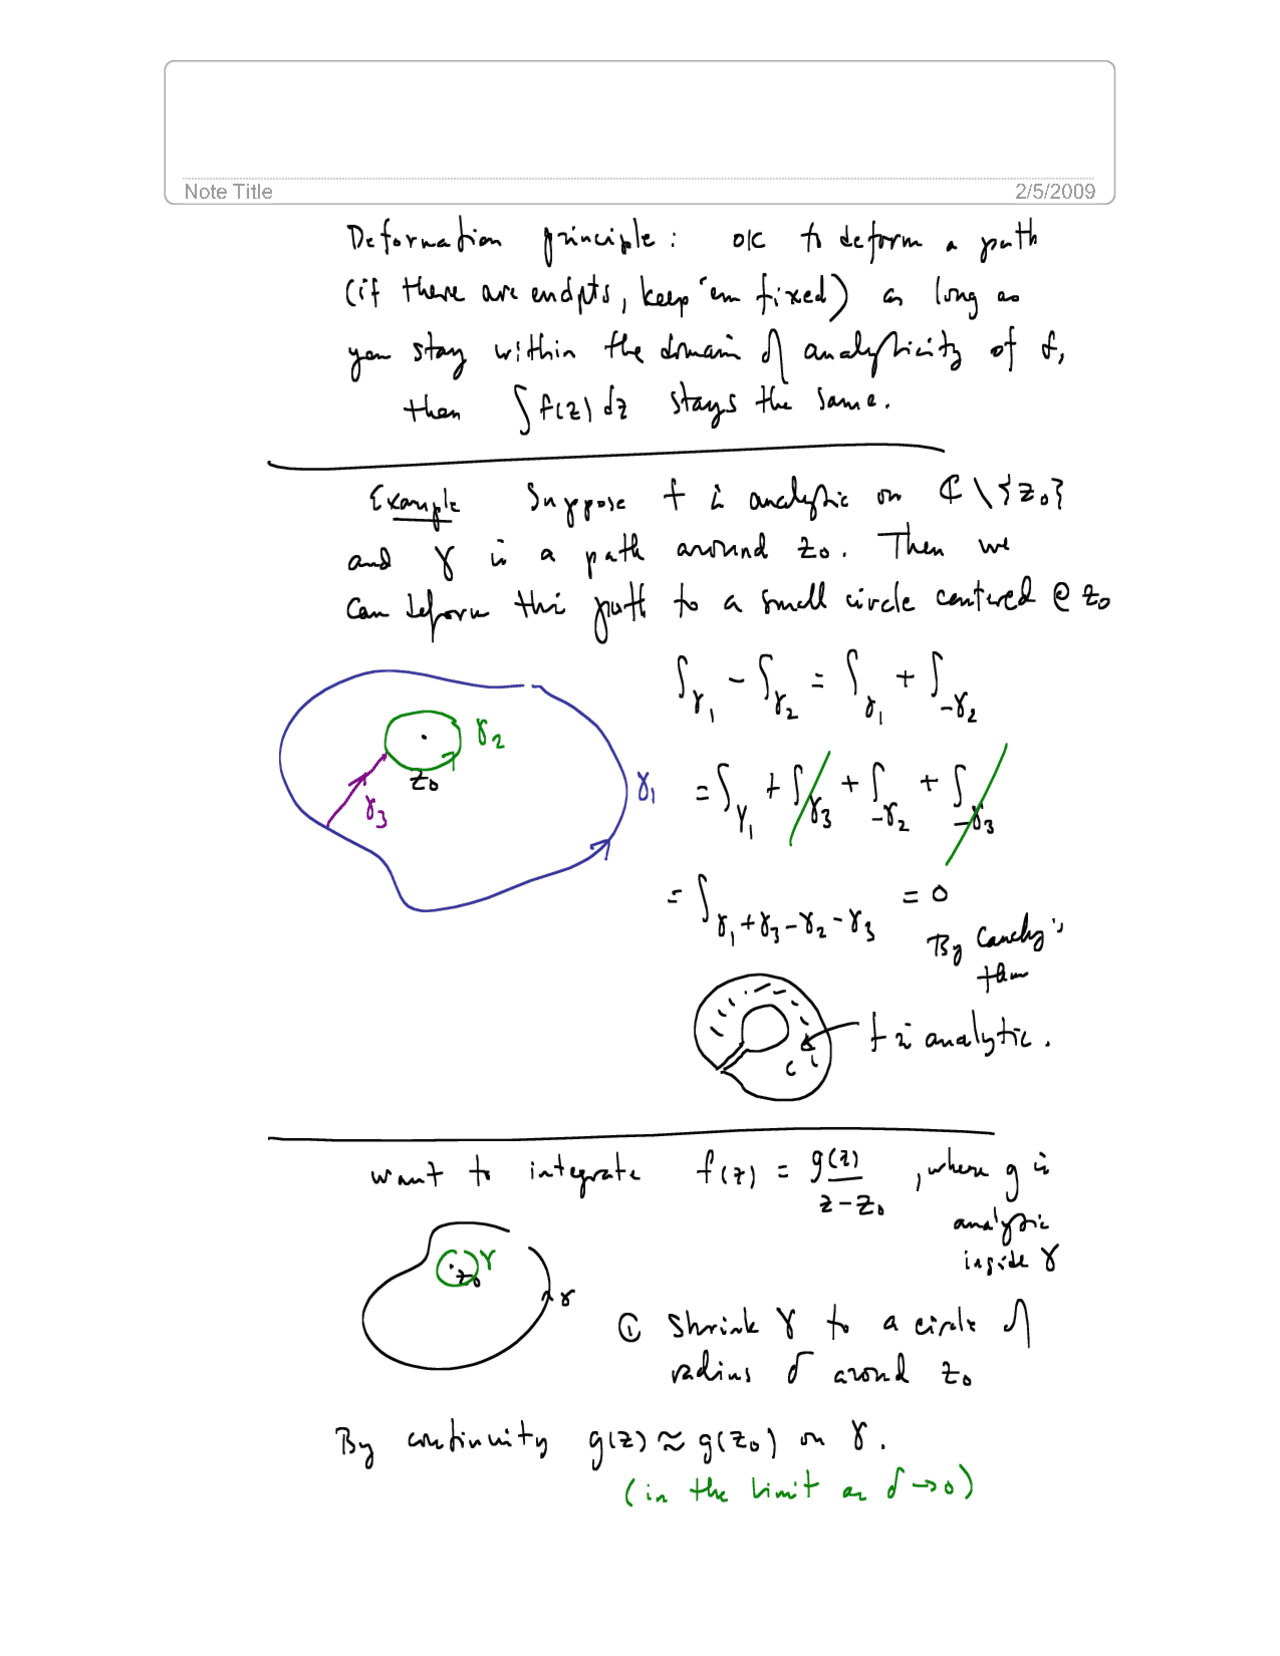 Note Title
2/5/2009
Deformation principle: OK to deform a path
(if there are endpts, keep 'em fixed) as long as
you stay within the domain of analyticity of f,
then ∫f(z)dz stays the same.
Example Suppose f is analytic on ℂ\{z₀}
and γ is a path around z₀. Then we
can deform this path to a small circle centered @ z₀
∫_γ₁ - ∫_γ₂ = ∫_γ₁ + ∫_-γ₂
γ₂
z₀
γ₃
γ₁
= ∫_γ₁ + ∫_γ₃ + ∫_-γ₂ + ∫_-γ₃
= ∫_γ₁+γ₃-γ₂-γ₃ = 0
By Cauchy's
thm
f is analytic.
want to integrate f(z) = g(z)/(z-z₀), where g is
analytic
inside γ
γ
z₀
γ
① Shrink γ to a circle of
radius δ around z₀
By continuity g(z) ≈ g(z₀) on γ.
(in the limit as δ→0)